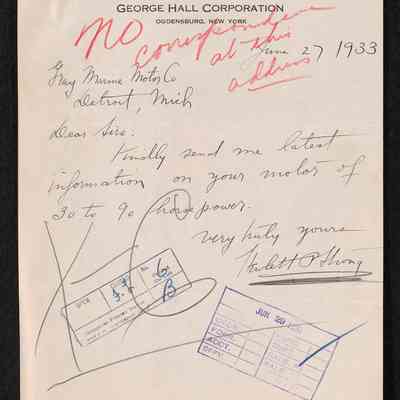 GEORGE HALL CORPORATION
OGDENSBURG, NEW YORK
NO
correspondence
at this
address
June 27 1933
Gray Marine Motor Co
Detroit, Mich
Dear Sirs:
Kindly send me latest
information on your motor of
30 to 90 horse power.
very truly yours
P Strong
No.
B
JUN 29
ACCT.